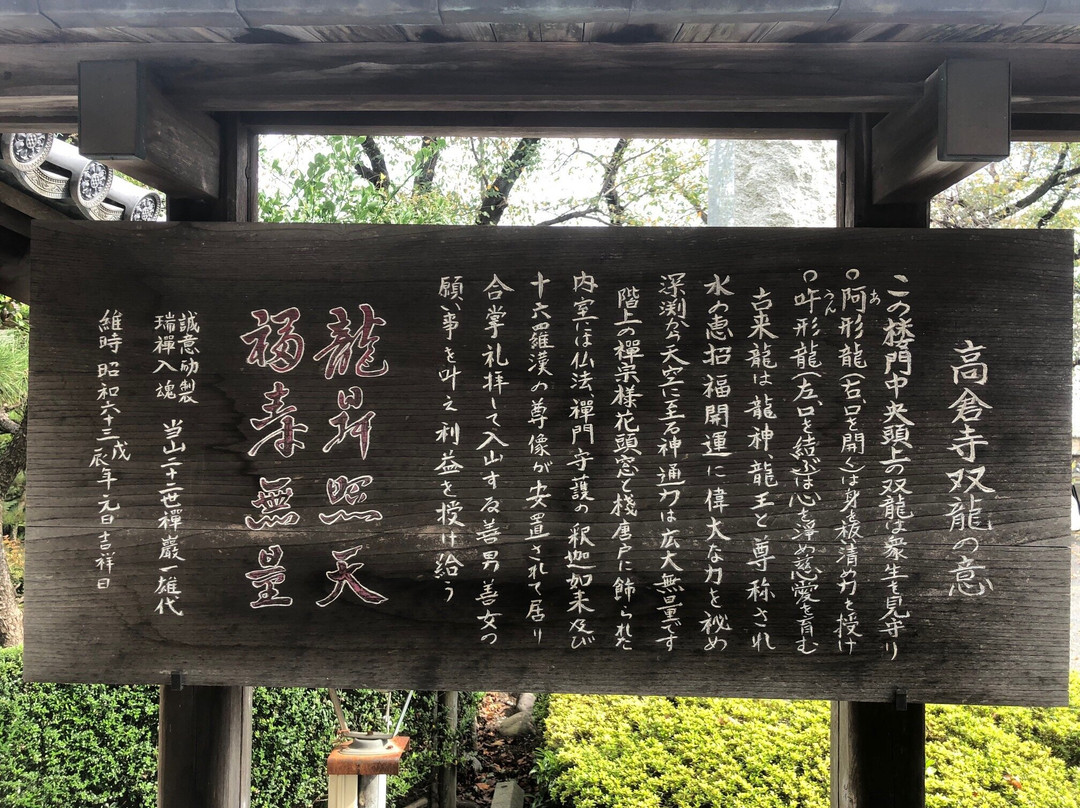 高倉寺双龍の意
この楼門中央頭上の双龍は衆生を見守り
○阿形龍(右、口を開く)は身を祓清め力を授け
あ
○吽形龍(左、口を結ぶ)は心を淨め慈愛を育む
うん
古来龍は龍神、龍王と尊称され
水の恵招福開運に偉大な力を秘め
深渕から天空に至る神通力は広大無量です
階上の禪宗様花頭窓と棧唐戸に飾られた
内室には仏法、禪門守護の釈迦如来及び
十六羅漢の尊像が安置されて居り
合掌礼拝して入山する善男善女の
願い事を叶え利益を授け給う
龍昇照天
福寿無量
誠意励製
瑞禪入魂
当山二十二世禪巖一雄代
維時昭和六十三戊辰年元日吉祥日